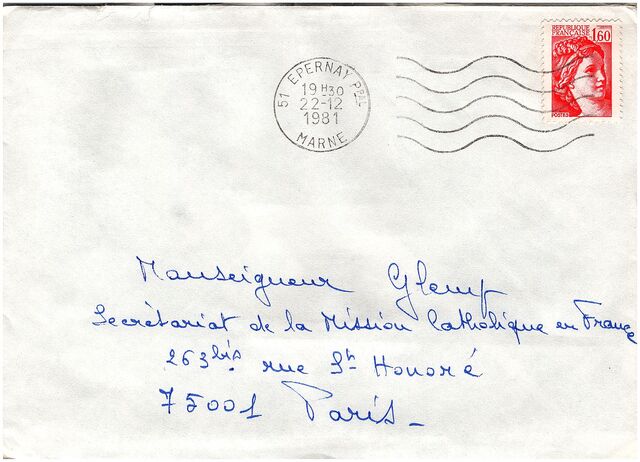 REPUBLIQUE
FRANÇAISE 1,60
POSTES
51 EPERNAY PPAL
19 H30
22-12
1981
MARNE
Monseigneur Glemp
Secrétariat de la Mission Catholique en France
263 bis rue St Honoré
75001 Paris_